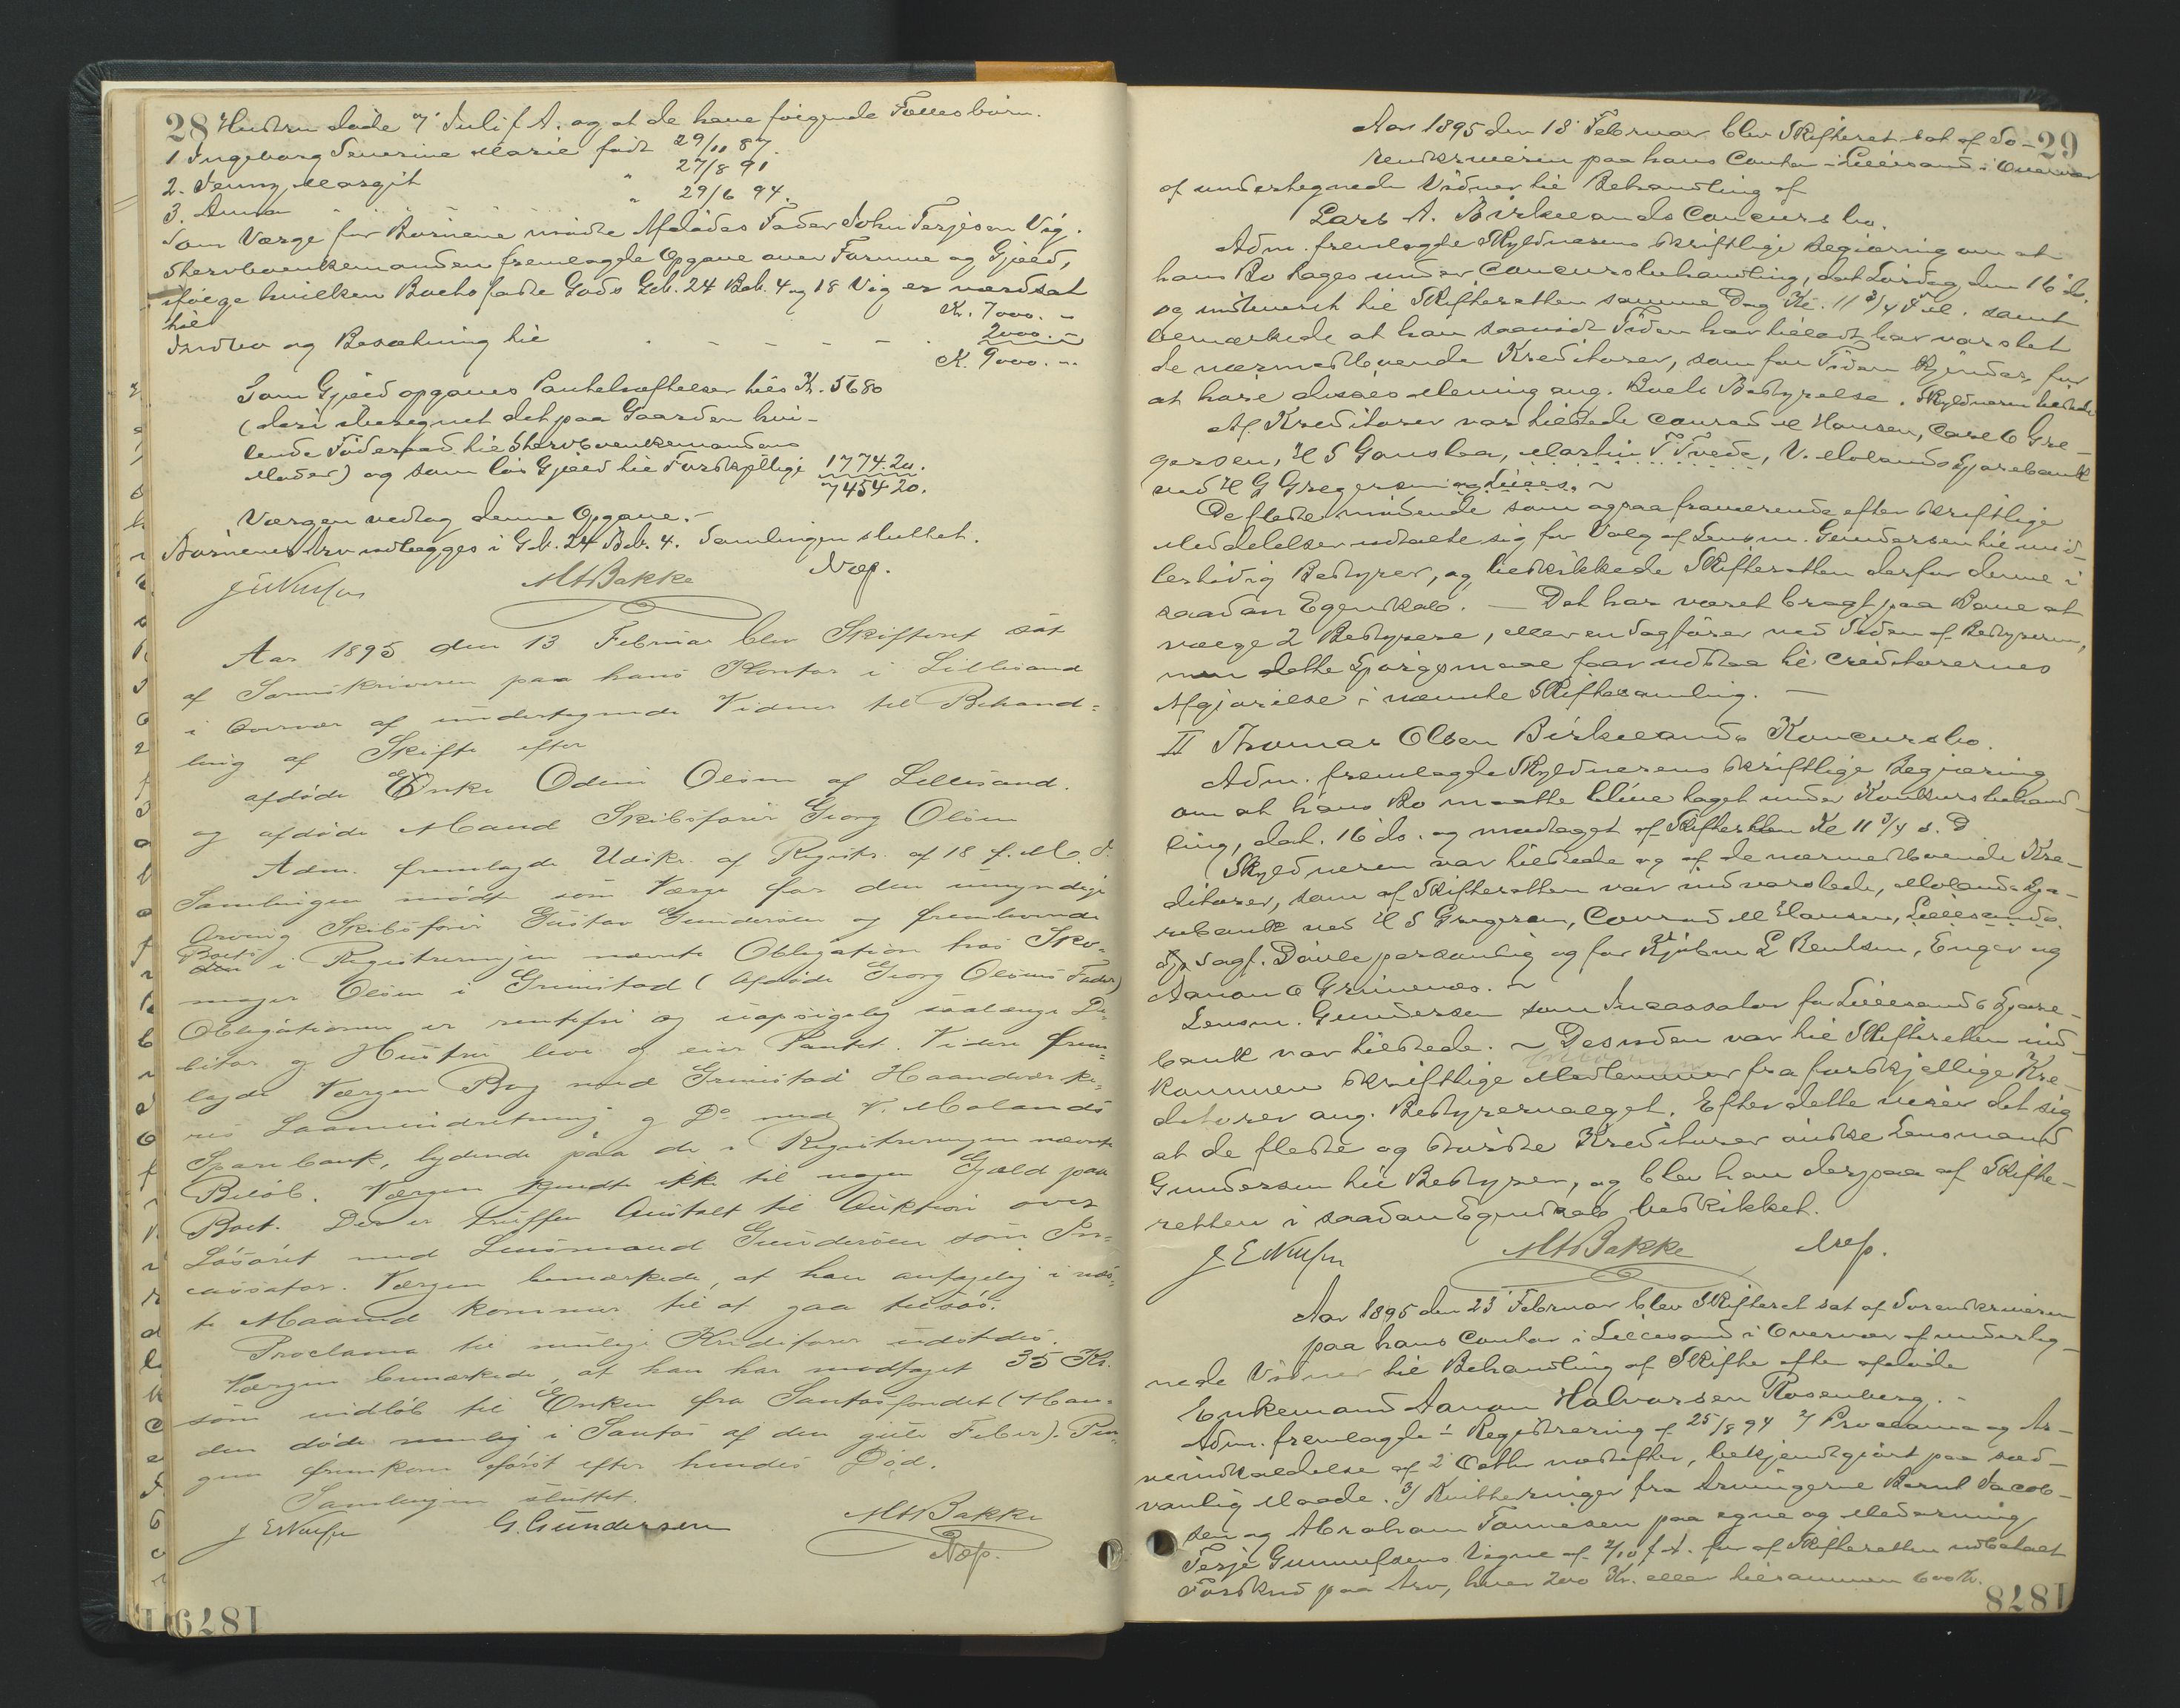 28 Hustru døde 7' Juli f A. og at de have følgende Fællesbørn.
1 Ingeborg Severine Marie født 29/11 87.
2. Jenny Margit " 27/8 91
3. Anna " 29/6 94.
Som Værge for Børnene mødte Afdødes Fader John Terjesen Vig.
Stervboenkemanden fremlagde Opgave over Formue og Gjæld,
ifølge hvilken Boets faste Gods Gb. 24 Bb. 4 og 18 Vig er værdsat
til Kr. 7000. -
Indbo og Besætning til - - - - - 2000. -
K. 9000. -
Som Gjæld opgaves Panteheftelser tils Kr. 5680
(deri iberegnet det paa Gaarden hvi-
lende Føderaad til Stervboenkemandens
Moder) og som løs Gjæld til Forskjellige 1774.20.
7454 20.
Værgen vedtog denne Opgave. -
Børnenes Arv udlægges i Gb. 24 Bb. 4. Samlingen sluttet.
MHBakke Næp.
Aar 1895 den 13 Februar blev Skifteret sat
af Sorenskriveren paa hans Kontor i Lillesand
i Overvær af undertegnede Vidner til Behand-
ling af Skifte efter
afdøde Enke Odine Olsen af Lillesand.
og afdøde Mand Skibsfører Georg Olsen
Adm. fremlagde Udskr. af Registr. af 18 f. M. I
Samlingen mødte som Værge for den umyndige
Arving Skibsfører Gustav Gundersen og fremleverede
Boets i Registreringen nævnte Obligation hos Sko-
mager Olsen i Grimstad (Afdøde Georg Olsens Fader)
Obligationen er rentefri og uopsigelig saalænge De-
bitor og Hustru leve og eier Pantet. Videre frem-
lagde Værgen Bog med Grimstad Haandværke-
res Laaneindretning og Do med V. Molands
Sparebank, lydende paa de i Registreringen nævnte
Beløb. Værgen kjendte ikke til nogen Gjæld paa
Boet. Der er truffen Anstalt til Auktion over
Løsøret med Lensmand Gundersen som In-
cassator. Værgen bemærkede, at han antagelig i næs-
te Maaned kommer til at gaa tilsøs.
Proclama til mulige Kreditorer udstedes.
Værgen bemærkede, at han har modtaget 35 Kr.
som indløb til Enken fra Santosfondet (Man-
den døde nemlig i Santos af den gule Feber). Pen-
gene fremkom først efter hendes Død.
Samlingen sluttet.
G. Gundersen MHBakke
Næp.
1879
29
Aar 1895 den 18' Februar blev Skifteret sat af So-
renskriveren paa hans Contor i Lillesand i Overvær
af undertegnede Vidner til Behandling af
Lars A. Birkelands Concursbo.
Adm. fremlagde Skyldnerens skriftlige Begjæring om at
hans Bo tages under Concursbehandling, dat Lørdag den 16' ds.
og indleveret til Skifteretten samme Dag Kl. 11 3/4 F. samt
bemærkede at han saavidt Tiden har tilladt har varslet
de nærmestboende Kreditorer, som for Tiden kjendes, for
at høre disses Mening ang. Boets Bestyrelse. Skyldneren tilstede
Af Kreditorer var tilstede Conrad M Hansen, Carl O Gre-
gersen, H S Gauslaa, Martin T Tvede, V. Molands Sparebank
ved H G Gregersen og Lilles. ~
De fleste mødende som ogsaa fraværende efter skriftlige
Meddelelser udtalte sig for Valg af Lensm. Gundersen til mid-
lertidig Bestyrer, og beskikkede Skifteretten derfor denne i
saadan Egenskab. — Det har været bragt paa Bane at
vælge 2 Bestyrere, eller en Sagfører ved Siden af Bestyreren,
men dette Spørgsmaal faar udstaa til Creditorernes
Afgjørelse i nævnte Skiftesamling. —
II Thomas Olsen Birkelands Koncursbo.
Adm. fremlagde Skyldnerens skriftlige Begjæring
om at hans Bo maatte blive taget under Konkursbehand-
ling, dat. 16 ds. og modtaget af Skifteretten Kl 11 3/4 s. D
Skyldneren var tilstede og af de nærmestboende Kre-
ditorer, som af Skifteretten var indvarslede, Molands Spa-
rebank ved H S Gregersen, Conrad M Hansen, Lillesands
Sp Sagf. Døvle personlig og for Kjøbm L Bentsen, Enger og
Aanon O Grimenes. ~
Lensm. Gundersen som Incassator for Lillesands Spare-
bank var tilstede. ~ Desuden var til Skifteretten ind-
kommen skriftlige fra forskjellige Kre-
ditorer ang. Bestyrervalget. Efter dette viser det sig
at de fleste og største Kreditorer ønske Lensmand
Gundersen til Bestyrer, og blev han derpaa af Skifte-
retten i saadan Egenskab beskikket.
MHBakke Næp.
Aar 1895 den 23' Februar blev Skifteret sat af Sorenskriveren
paa hans Contor i Lillesand i Overvær af underteg-
nede Vidner til Behandling af Skifte efter afdøde
Enkemand Aanon Halvorsen Rosenberg. -
Adm. fremlagde 1/ Registrering af 25/8 94 2/ Proclama og Ar-
veindkaldelse af 2' Octbr næstefter, bekjendtgjort paa sæd-
vanlig Maade. 3/ Kvitteringer fra Arvingerne Bernt Jacob-
sen og Abraham Tønnesen paa egne og Medarving
Terje Gunnufsens Vegne af 2/10 f A. for af Skifteretten udbetalt
Forskud paa Arv, hver 200 Kr. eller tilsammen 600 Kr.
1878